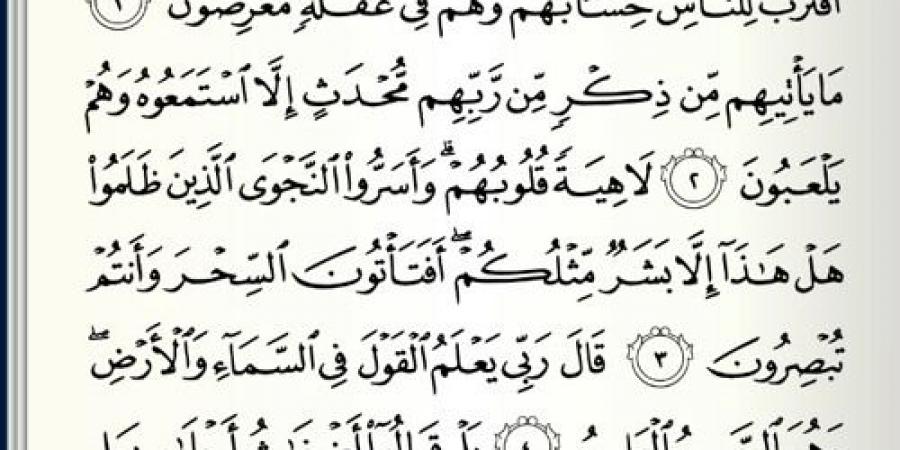 ٱقۡتَرَبَ لِلنَّاسِ حِسَابُهُمۡ وَهُمۡ فِي غَفۡلَةٖ مُّعۡرِضُونَ ١
مَا يَأۡتِيهِم مِّن ذِكۡرٖ مِّن رَّبِّهِم مُّحۡدَثٍ إِلَّا ٱسۡتَمَعُوهُ وَهُمۡ
يَلۡعَبُونَ ٢ لَاهِيَةٗ قُلُوبُهُمۡۗ وَأَسَرُّواْ ٱلنَّجۡوَى ٱلَّذِينَ ظَلَمُواْ
هَلۡ هَٰذَآ إِلَّا بَشَرٞ مِّثۡلُكُمۡۖ أَفَتَأۡتُونَ ٱلسِّحۡرَ وَأَنتُمۡ
تُبۡصِرُونَ ٣ قَالَ رَبِّي يَعۡلَمُ ٱلۡقَوۡلَ فِي ٱلسَّمَآءِ وَٱلۡأَرۡضِۖ